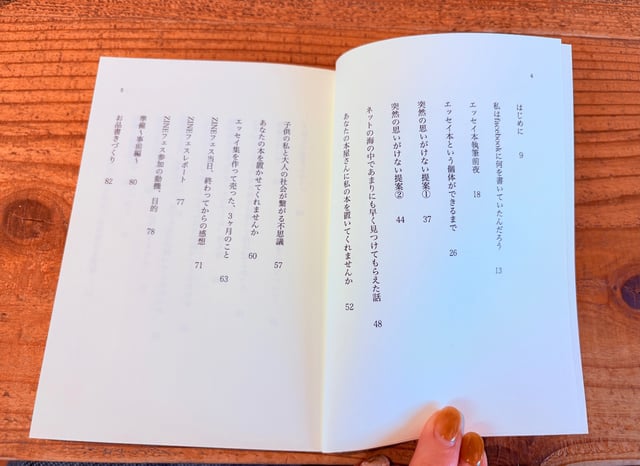 4
はじめに 9
私はfacebookに何を書いていたんだろう 13
エッセイ本執筆前夜 18
エッセイ本という個体ができるまで 26
突然の思いがけない提案① 37
突然の思いがけない提案② 44
ネットの海の中であまりにも早く見つけてもらえた話 48
あなたの本屋さんに私の本を置いてくれませんか 52
子供の私と大人の社会が繋がる不思議 57
あなたの本を置かせてくれませんか 60
エッセイ集を作って売った、3ヶ月のこと 63
ZINEフェス当日、終わってからの感想 71
ZINEフェスレポート 77
ZINEフェス参加の動機、目的 78
準備〜事前編〜 80
お品書きづくり 82